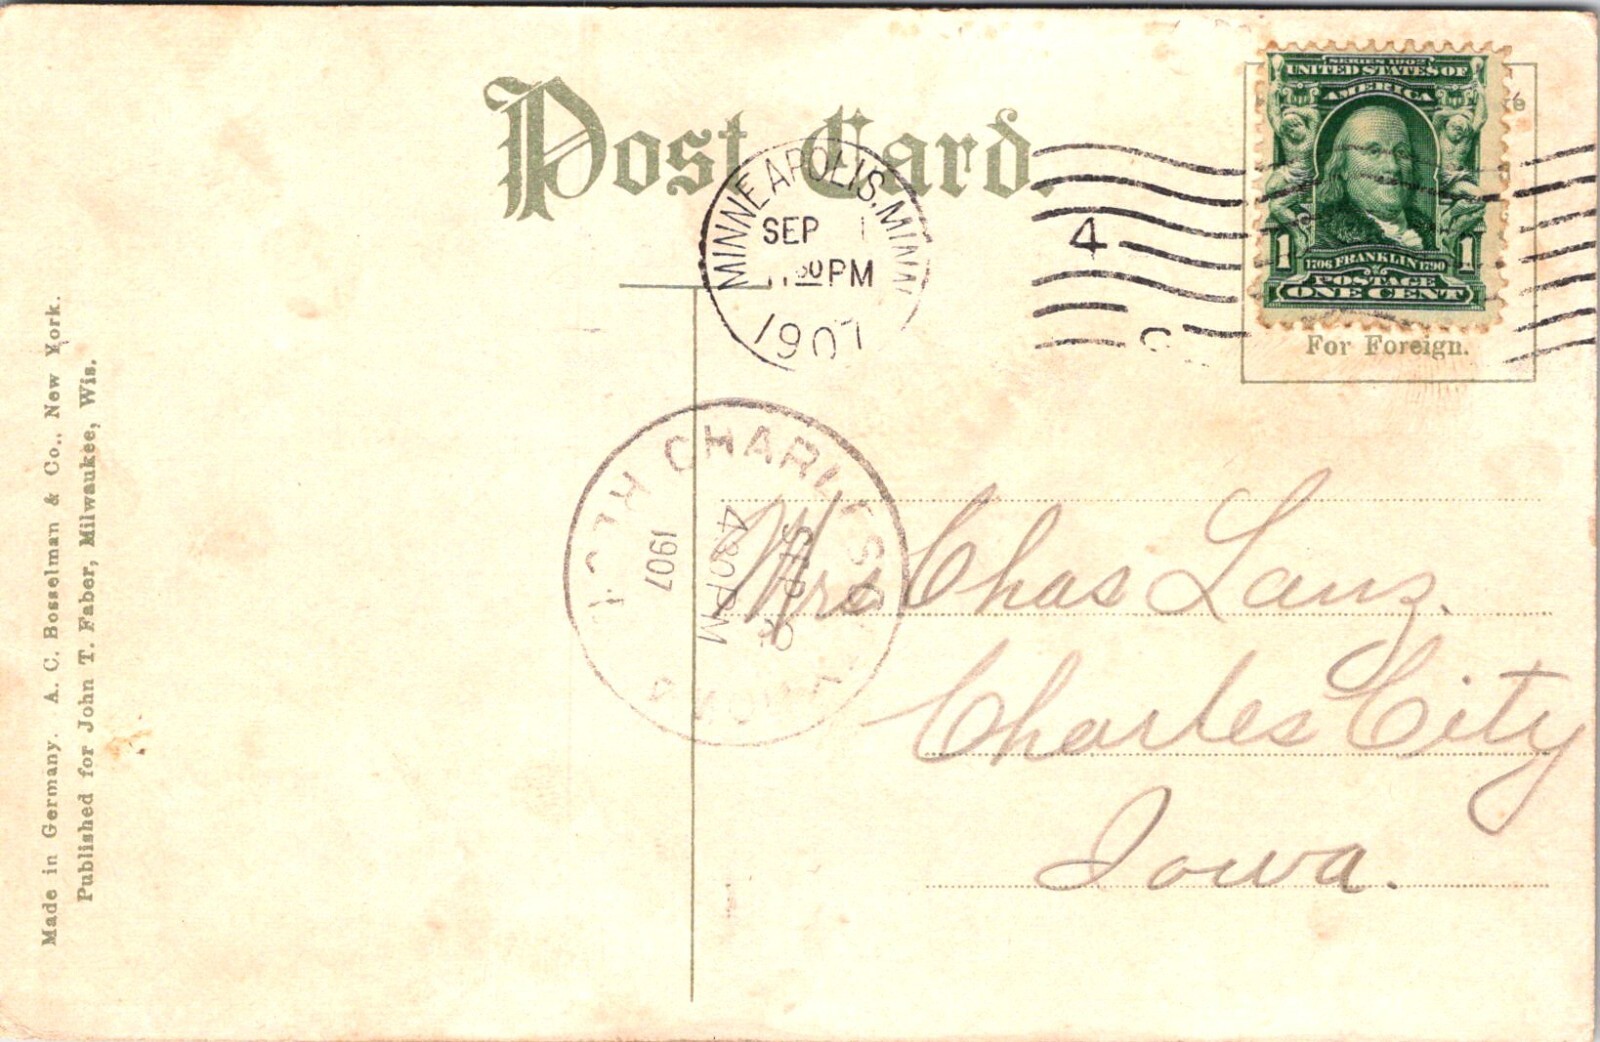 Post Card.
SERIES 1902
UNITED STATES OF
AMERICA
1706 FRANKLIN 1790
1 1
POSTAGE
ONE CENT
MINNEAPOLIS, MINN
SEP 1
30 PM
1907
4
For Foreign.
CHARLES
SEP
430 PM
1907
Mrs Chas Lanz.
Charles City
Iowa.
Made in Germany. A. C. Bosselman & Co., New York.
Published for John T. Faber, Milwaukee, Wis.